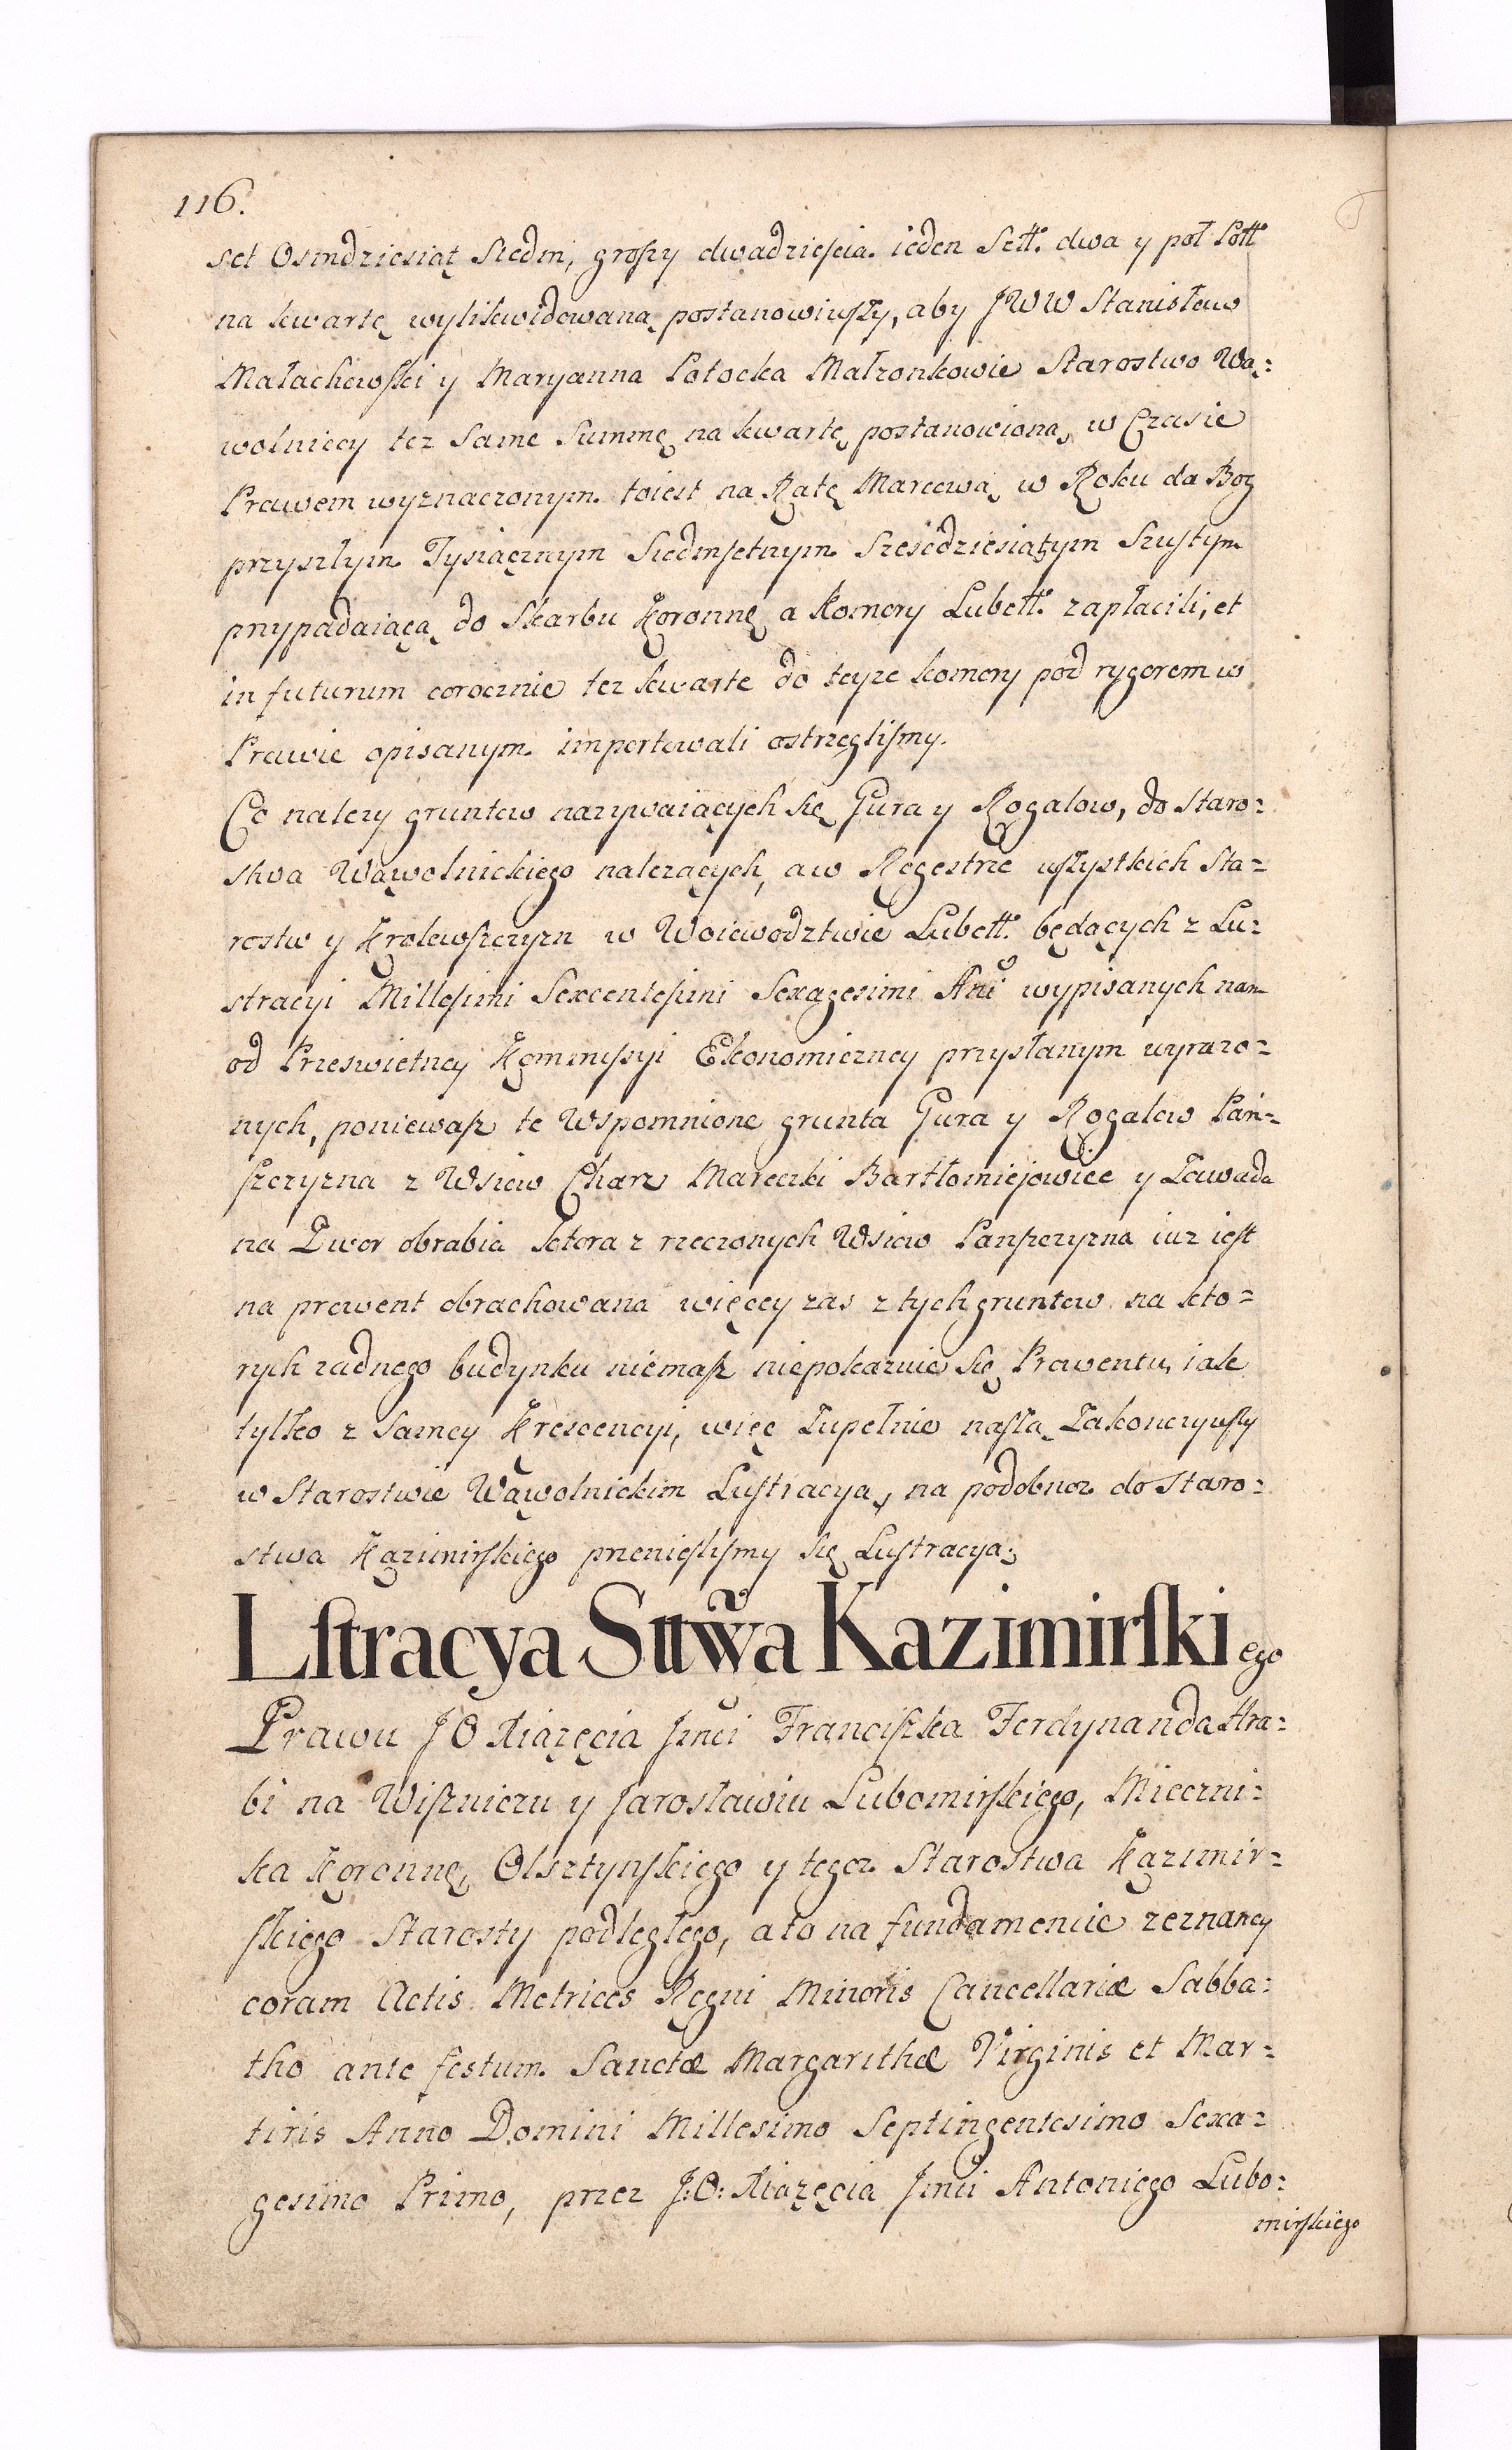 116.
set Osmdziesiąt Siedm, groszy dwadzieścia ieden Szell: dwa y poł Poll:
na kwartę wylikwidowaną postanowiwszy, aby JWW Stanisław
Małachowski y Maryanna Potocka Małzonkowie Starostwo Wą=
wolniecy tez Same Summę na kwartę postanowioną w Czasie
Prawem wyznaczonym toiest na Ratę Marcową w Roku da Bog
przyszłym Tysiącznym Siedmsetnym Sześćdziesiątym Szustym
przypadaiącą do Skarbu Koronnę a Komory Lubell: zapłacili, et
in futurum corocznie tez kwarte do teyze komory pod rygorem w
Prawie opisanym importowali ostrzegliśmy.
Co nalezy gruntow nazywaiących się Gura y Rogalow, do Staro=
stwa Wąwolnickiego nalezących, a w Regestrze wszystkich Sta=
rostw y Krolewszczyzn w Woiewodztwie Lubell: będących z Lu=
stracyi Millesimi Sexcentesimi Sexagesimi Ani wypisanych nam
od Przeswietney Kommissyi Ekonomiczney przysłanym wyrazo=
nych, poniewasz te wspomnione grunta Gura y Rogalow Pań=
szczyzna z Wsiow Charz Mareczki Bartłomiejowice y Zawada
na Dwor obrabia ktora z rzeczonych Wsiow Panszczyzna iuz iest
na prowent obrachowana więcey zas z tych gruntow na kto=
rych zadnego budynku niemasz niepokazuie się Prowentu, iak
tylko z Samey Krescencyi, więc Zupełnie naszą Zakonczywszy
w Starostwie Wąwolnickim Lustracyą, na podobnoz do Staro=
stwa Kazimirskiego przenieśliśmy się Lustracyą.
Lstracya Sttwa Kazimirskiego
Prawu JO Xiązęcia Jmci Franciszka Ferdynanda Hra=
bi na Wiszniczu y Jarosławiu Lubomirskiego, Mieczni=
ka Koronnę, Olsztynskiego y tegoz Starostwa Kazimir=
skiego Starosty podległego, a to na fundamencie zeznaney
coram Actis Metrices Regni Minoris Cancellariæ Sabba=
tho ante festum Sanctæ Margarithæ Virginis et Mar=
tiris Anno Domini Millesimo Septingentesimo Sexa=
gesimo Primo, przez J:O: Xiązęcia Jmci Antoniego Lubo=
mirskiego